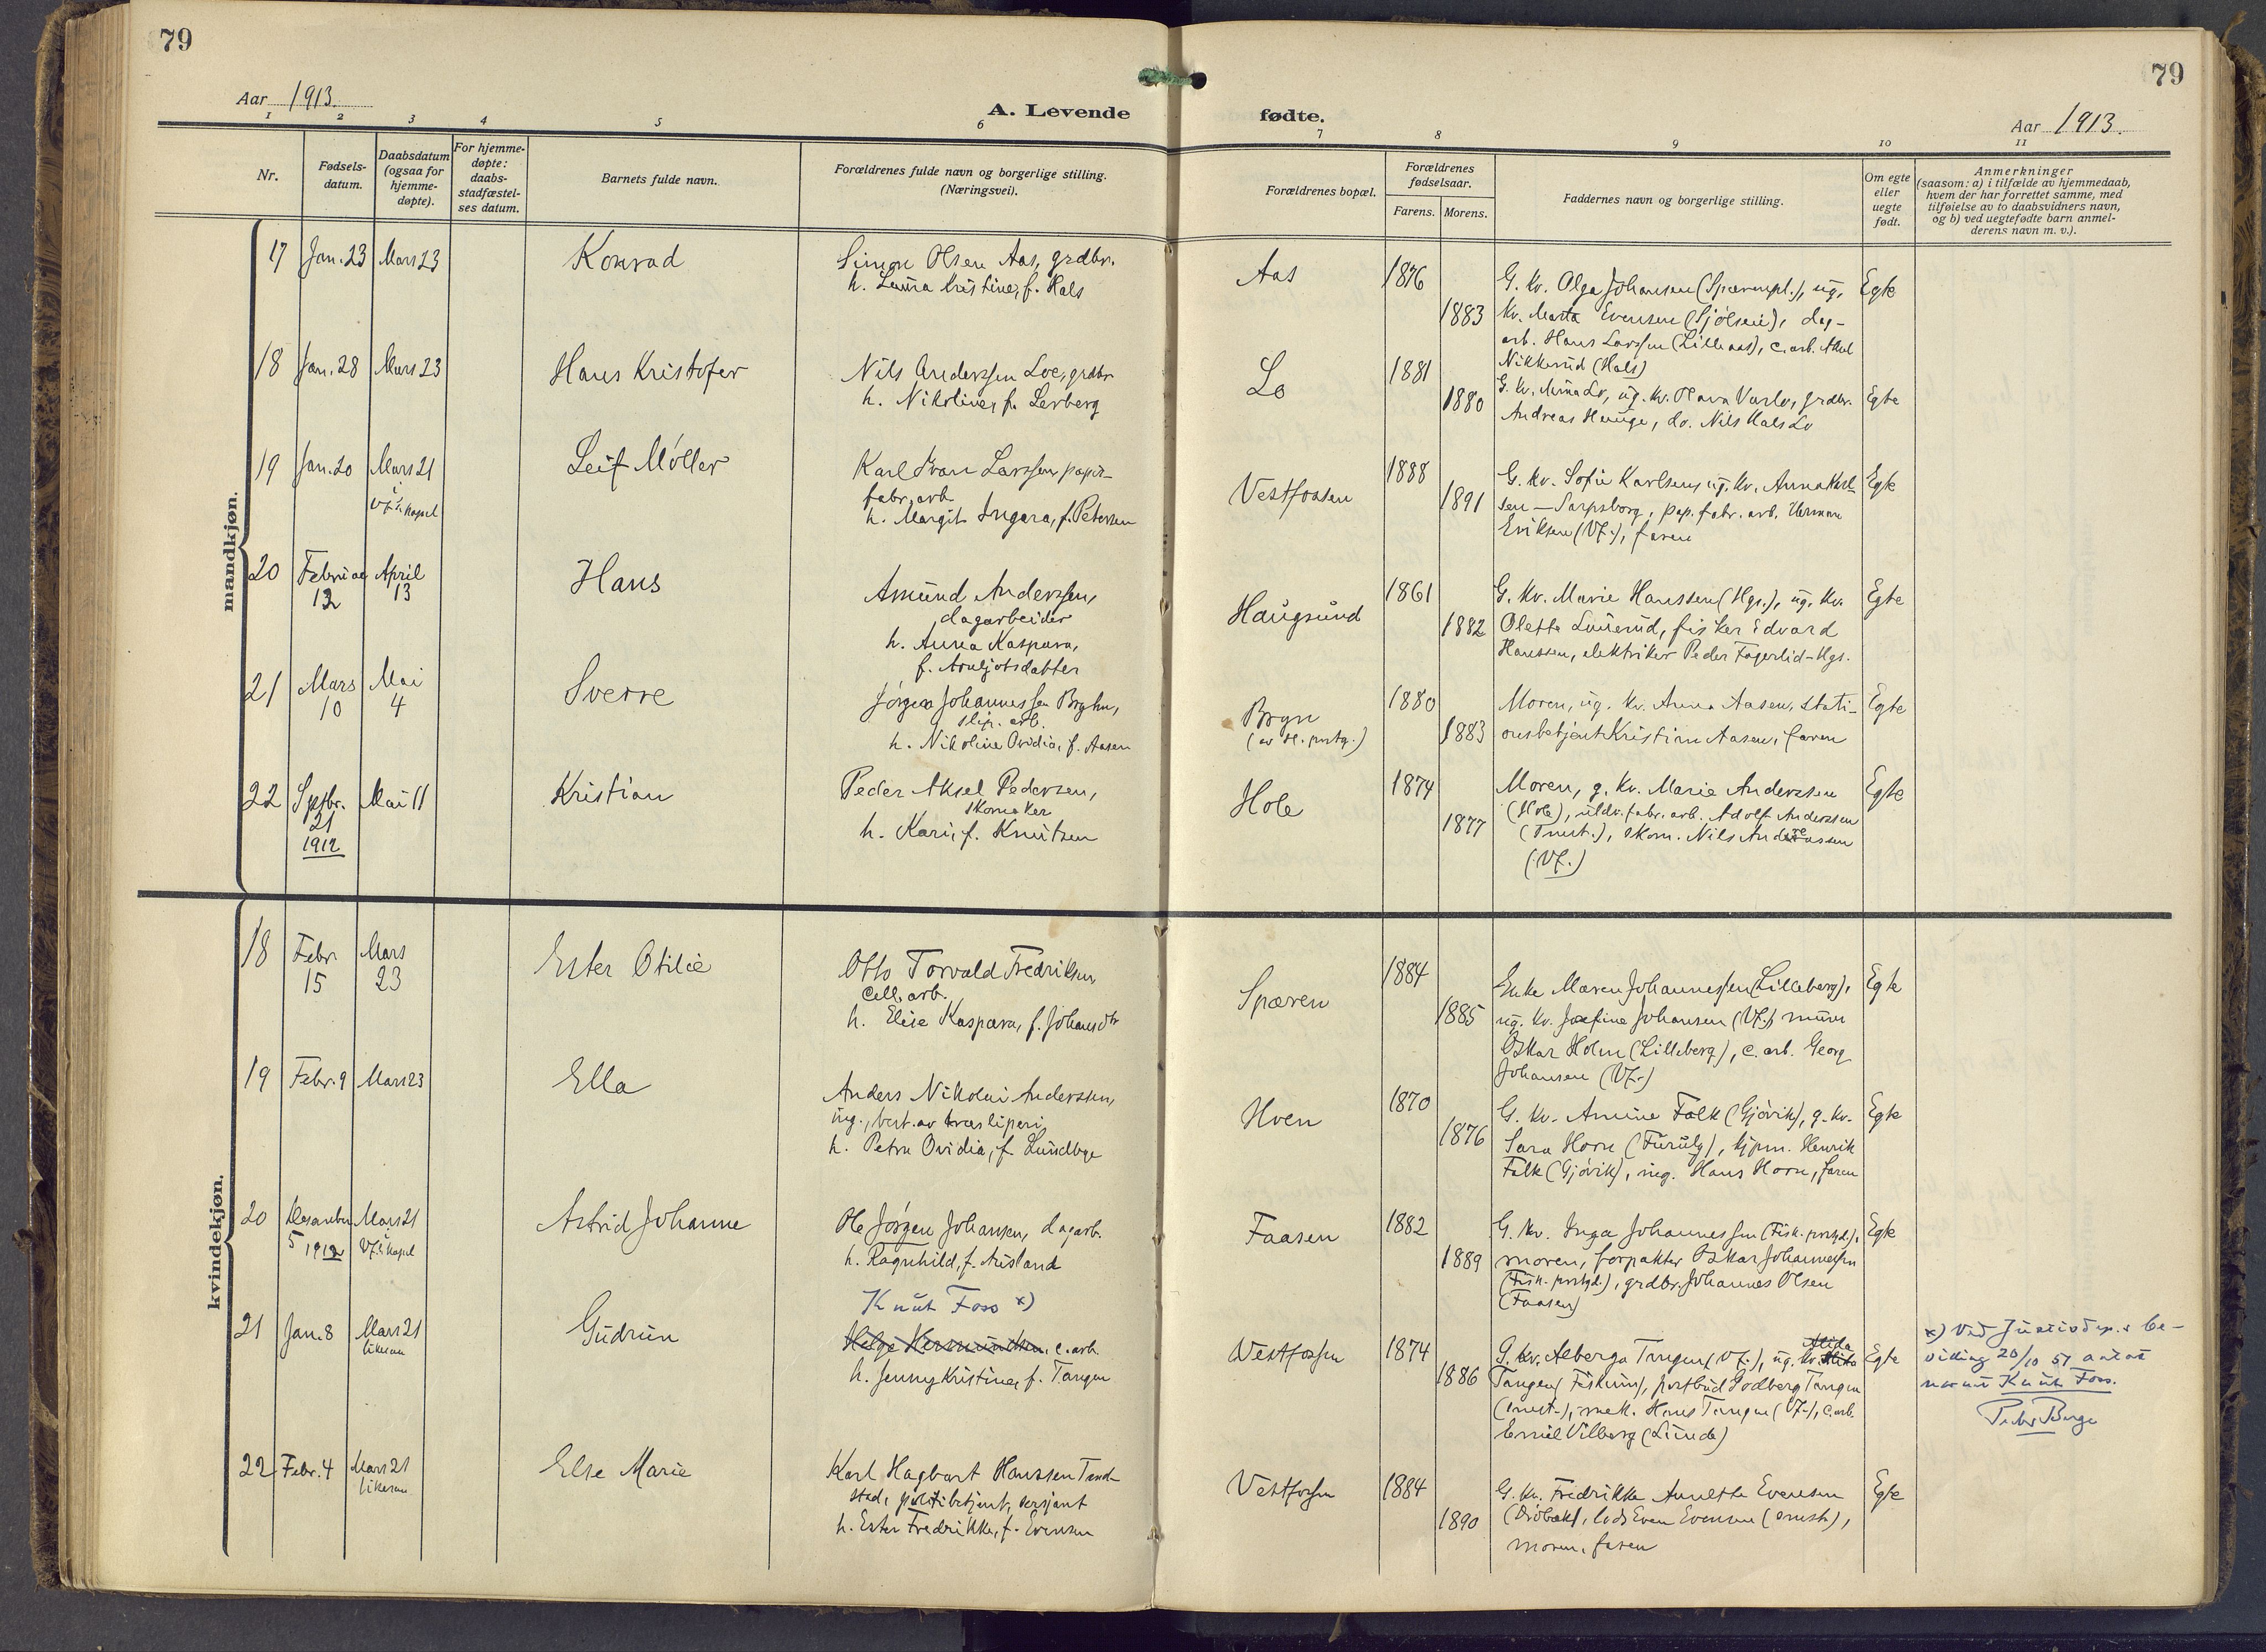 79
79
Aar 1913.
A. Levende
fødte.
Aar 1913.
1 2 3 4 5 6 7 8 9 10 11
Nr.
Fødsels-
datum.
Daabsdatum
(ogsaa for
hjemme-
døpte).
For hjemme-
døpte:
daabs-
stadfæstel-
ses datum.
Barnets fulde navn.
Forældrenes fulde navn og borgerlige stilling.
(Næringsvei).
Forældrenes bopæl.
Forældrenes
fødselsaar.
Farens. Morens.
Faddernes navn og borgerlige stilling.
Om egte
eller
uegte
født.
Anmerkninger
(saasom: a) i tilfælde av hjemmedaab,
hvem der har forrettet samme, med
tilføielse av to daabsvidners navn,
og b) ved uegtefødte barn anmel-
derens navn m. v.).
mandkjøn.
17 Jan. 23 Mars 23
Konrad
Simon Olsen Aas, grdbr.
h. Laura Kristine, f. Hals
Aas
1876
1883
G. kv. Olga Johansen ug.
kv. Marta Evensen dag-
arb. Hans Larssen (Lilleaas), c. arb.
Nikkerud (Hals)
Egte
18 Jan. 28 Mars 23
Hans Kristofer
Nils Anderssen Loe, grdbr
h. Nikoline, f. Lerberg
Lo
1881
1880
G. kv. Anna Lo, ug. kv. Olava Varlo, grdbr.
Andreas Hauge, do. Nils Hals Lo
Egte
19 Jan. 20 Mars 21
i
Vf.s kapel
Leif Møller
Karl Ivan Larssen, papir-
fabr. arb.
h. Margit Ingara, f. Petersen
Vestfossen
1888
1891
G. kv. Sofie Karlsen, ug. kv. Anna Karl-
sen — Sarpsborg, pap. fabr. arb. Herman
Eriksen (Vf.), faren
Egte
20 Februar April
12 13
Hans
Amund Anderssen,
dagarbeider
h. Anna Kaspara,
f. Arneljotsdatter
Haugsund
1861
1882
G. kv. Marie Hanssen (Hgs.), ug. kv.
Olette Luuerud, fisker Edvard
Hanssen, elektriker Peder Fagerlid - Hgs.
Egte
21 Mars Mai
10 4
Sverre
Jørgen Johannessen Bryhn,
slip. arb.
h. Nikoline Ovidia, f. Aasen
Bryn
1880
1883
Moren, ug. kv. Anna Aasen, stati-
onsbetjent Kristian Aasen, faren
Egte
22 Septbr. Mai 11
21
1912
Kristian
Peder Aksel Pedersen,
skomaker
h. Kari, f. Knutsen
Hole
1874
1877
Moren, g. kv. Marie Anderssen
(Hole), uldv. fabr. arb. Adolf Anderssen
skom. Nils
(Vf.)
Egte
kvindekjøn.
18 Febr Mars
15 23
Ester Otilie
Otto Torvald Fredriksen
Cell. arb.
h. Elise Kaspara, f. Johansdtr
Spæren
1884
1885
Enke Maren Johannessen (Lilleberg),
ug. kv. Josefine Johansen (Vf.), murer
Oskar Holm (Lilleberg), c. arb. Georg
Johansen (Vf.)
Egte
19 Febr. 9 Mars 23
Ella
Anders Nikolai Anderssen,
ing., best. av træsliperi
h. Petra Ovidia, f. Lundbye
Hoen
1870
1876
G. kv. Amine Falk (Gjøvik), g. kv.
Sara Horn kjpm. Henrik
Falk (Gjøvik), ing. Hans Horn, faren
Egte
20 Desember Mars 21
5 1912 i Vf.s kapel
Astrid Johanne
Ole Jørgen Johansen, dagarb.
h. Ragnhild, f. Ausland
Faasen
1882
1889
G. kv. Inga Johannessen (Fisk. prstgd.),
moren, forpakter Oskar Johannessen
(Fisk. prstgd.), grdbr. Johannes Olsen
(Faasen)
Egte
21 Jan. 8 Mars 21
likesaa
Gudrun
Knut Foss x)
Helge Hermundsen, c. arb.
h. Jenny Kristine, f. Tangen
Vestfossen
1874
1886
G. kv. Aeberga Tangen (Vf.), ug. kv. Alida
Tangen (Fiskum), postbud Godberg Tangen
mek. Hans Tangen (Vf.), c. arb.
Emil Vilberg (Lunde)
Egte
x) Ved Justisdep.s be-
villing 20/10 51 antat
navnet Knut Foss.
Peter Berge
22 Febr. 4 Mars 21
likesaa
Else Marie
Karl Hagbart Hanssen
stad, politibetjent, sersjant
h. Ester Fredrikke, f. Evensen
Vestfossen
1884
1890
G. kv. Fredrikke Annette Evensen
(Drøbak), lods Even Evensen
moren, faren
Egte